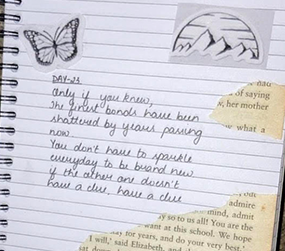 DAY-23
Only if you knew,
The finest bonds have been
shattered by years passing
now.
You don't have to sparkle
everyday to be brand new
if the other one doesn't
have a clue, have a clue
had
of saying
her mother
what a
admire
mind, admit
so to us all! You are the
want at this school. We hope
for years, and do your very best.'
will,' said Elizabeth, and